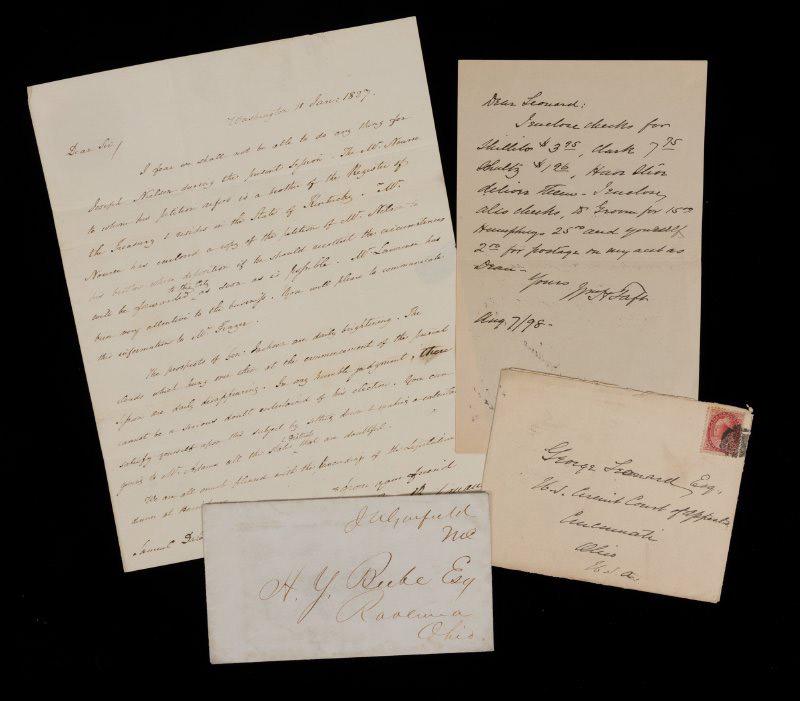 Washington 11 Jany 1827.
Dear Sir/
I fear we shall not be able to do any thing for
Joseph Nielson during the present Session. The Mr. Nourse
to whom his petition refers is a brother of the Register of
the Treasury & resides in the State of Kentucky. Mr.
Nourse has enclosed a copy of the petition of Mr. Niels
his brother whose deposition if he should recollect the circumstances
to this City
will be forwarded as soon as is possible. Mr. Lawrence has
been very attentive to the business. You will please to communicate
this information to Mr. Frazer.
The prospects of Gen: Jackson are daily brightening. The
clouds which hung over them at the commencement of the present
Session are daily disappearing. In my humble judgment, there
cannot be a serious doubt entertained of his election. You can
satisfy yourself upon this subject by sitting down & making a calculation
giving to Mr. Adams all the States that are doubtful.
We are all much pleased with the proceedings of the Legislature
from your friend
Samuel
Dear Leonard:
I enclose checks for
Shillito $3.95, Clark 7.75
Schultz $1.96, Have Alvin
deliver them - I enclose
also checks, to Groom for 15.00
Humphreys 25.00 and yourself
2.00 for postage on my acct as
Dean -
Yours
Wm H Taft
Aug 7/98 -
George Leonard Esq.
U.S. Circuit Court of Appeals
Cincinnati
Ohio
U.S.A.
J A Garfield
MC
H. Y. Beebe Esq
Ravenna
Ohio.